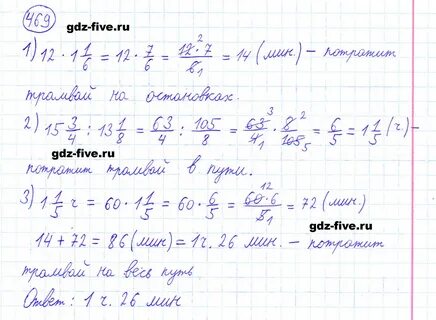 469
gdz-five.ru
gdz-five.ru
1) 12 · 1 1/6 = 12 · 7/6 = 12 · 7 / 6 = 14 (мин) – потратит
трамвай на остановках.
2) 15 3/4 : 13 1/8 = 63/4 : 105/8 = 63/4 · 8/105 = 6/5 = 1 1/5 (ч) –
gdz-five.ru
потратит трамвай в пути.
3) 1 1/5 ч = 60 · 1 1/5 = 60 · 6/5 = 60 · 6 / 5 = 72 (мин.)
gdz-five.ru
14 + 72 = 86 (мин) = 1 ч. 26 мин – потратит
трамвай на весь путь
gdz-five.ru
Ответ: 1 ч. 26 мин